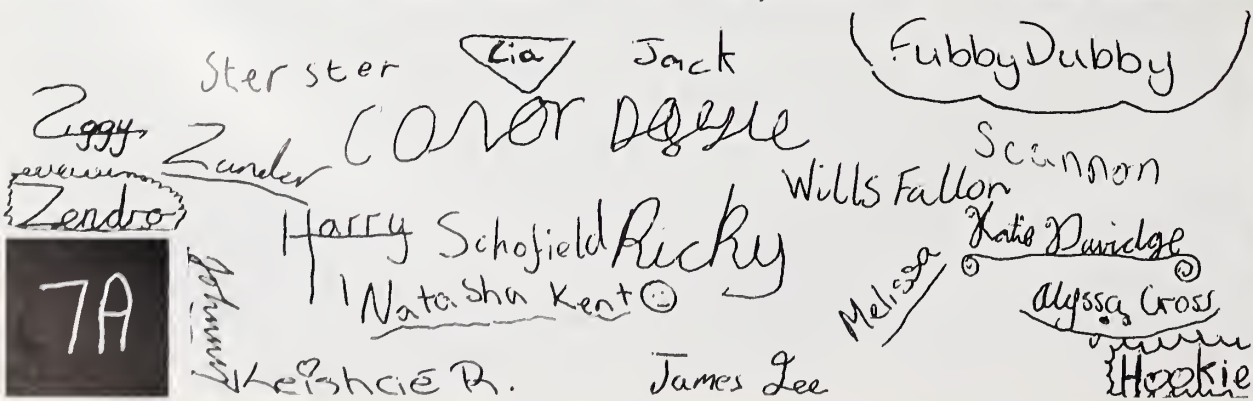 Ster ster
Lia
Jack
FubbyDubby
Ziggy
Zander
Conor Doyle
Scannon
Zendro
Wills Fallon
Harry Schofield
Ricky
Katie Davidge
7A
Johnny
Natasha Kent
Melissa
Alyssa Cross
James Lee
Hookie